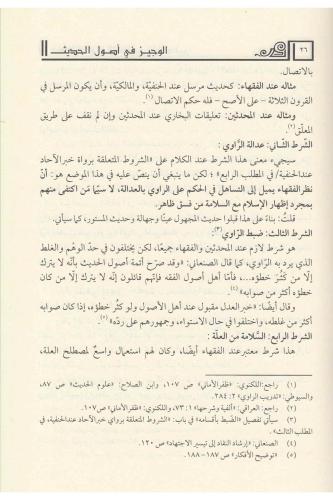 ٢٦ الوجيز في أصول الحديث
بالاتصال.
مثاله عند الفقهاء: كحديث مرسل عند الحنفيّة، والمالكيّة، وأن يكون المرسل في
القرون الثلاثة - على الأصح - فله حكم الاتصال (١).
ومثاله عند المحدثين: تعليقات البخاري عند المحدثين وإن لم نقف على طريق
المعلّق(٢).
الشرط الثّاني: عدالة الرَّاوي :
سيجيء معنى هذا الشرط عند الكلام على «الشروط المتعلقة برواة خبرالآحاد
عندالحنفيّة/ في المطلب الرابع» ؛ لكن ما ينبغي أن ينصّ عليه في هذا الموضع هو: أنّ
نظرالفقهاء يميل إلى التساهل في الحكم على الراوي بالعدالة، لا سيّما مَن اكتفى منهم
بمجرد إظهار الإسلام مع السلامة من فسق ظاهر.
قلتُ: بناءً على هذا قبلوا حديث المجهول عيناً وجهالة وحديث المستور، كما سيأتي.
الشرط الثالث: ضبط الرَّاوي (٣):
هو شرط لازم عند المحدثين والفقهاء جميعًا، لكن يختلفون في حدّ الوهم والغلط
الذي يرد به الرَّاوي، كما قال الصنعاني: «وقد صرّح أئمة أصول الحديث بأنّه لا يترك
إلّا من كثُرَ خطؤه، ...، فأمّا أهل أصول الفقه فإنّهم قائلون إنّه لا يترك إلّا من كان
خطؤه أكثر من صوابه» (٤)
وقال أيضًا: «خبر العدل مقبول عند أهل الأصول ولو كثُر خطؤه، إذا كان صوابه
أكثر من غلطه، واختلفوا في حال الاستواء، وجمهورهم على ردّه» (٥).
الشرط الرابع: السَّلامة من العلّة :
هذا شرط معتبرعند الفقهاء أيضًا، وكان لهم استعمال واسعٌ لمصطلح العلة،
(١) راجع: اللكنوي: «ظفرالأماني» ص ١٠٧، وابن الصلاح: «علوم الحديث» ص ٨٧،
والسيوطي: «تدريب الراوي» ٢: ٢٨٤.
(٢) راجع: العراقي: «ألفية وشرحها» ١: ٧٣، واللكنوي: «ظفرالأماني» ص١٠٧.
(٣) سيأتي تفصيل «الضبط بأقسامه» في باب: «الشروط المتعلقة برواة خبرالآحاد عندالحنفية، في
المطلب الثالث» .
(٤) الصنعاني: «إرشاد النقاد إلى تيسير الاجتهاد» ص ١٢٠.
(٥) «توضيح الأفكار» ص ١٨٧-١٨٨.